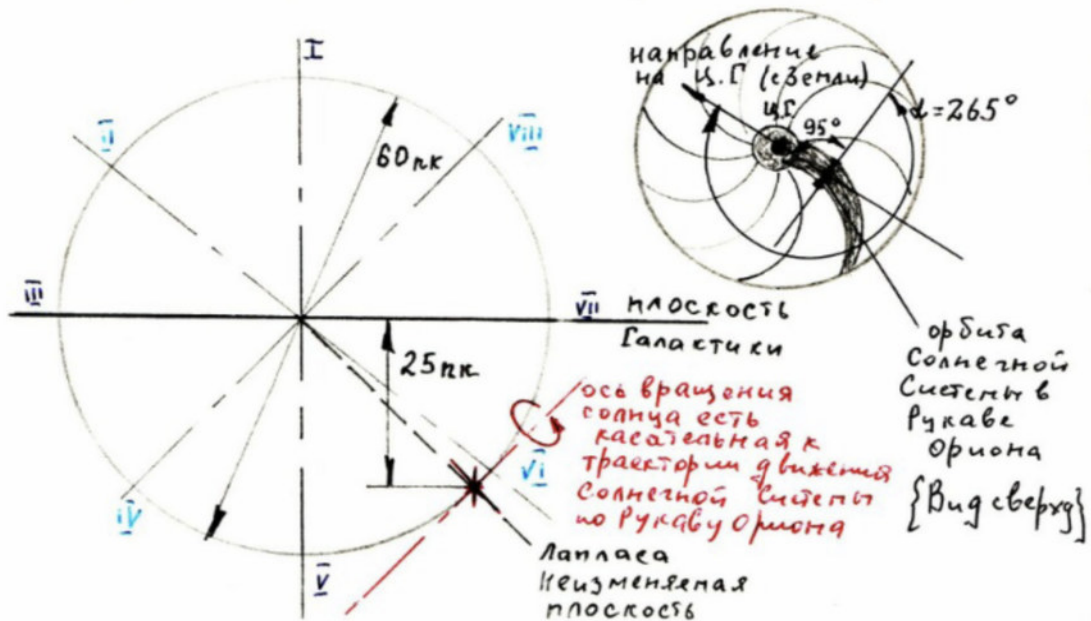 I
II
VIII
60пк
III
VII
плоскость
Галактики
25пк
ось вращения
солнца есть
касательная к
траектории движения
Солнечной Системы
по Рукаву Ориона
VI
IV
V
Лапласа
Неизменяемая
плоскость
направление
на Ц.Г (с Земли)
Ц.Г.
95°
α=265°
орбита
Солнечной
Системы в
Рукаве
Ориона
{Вид сверху}